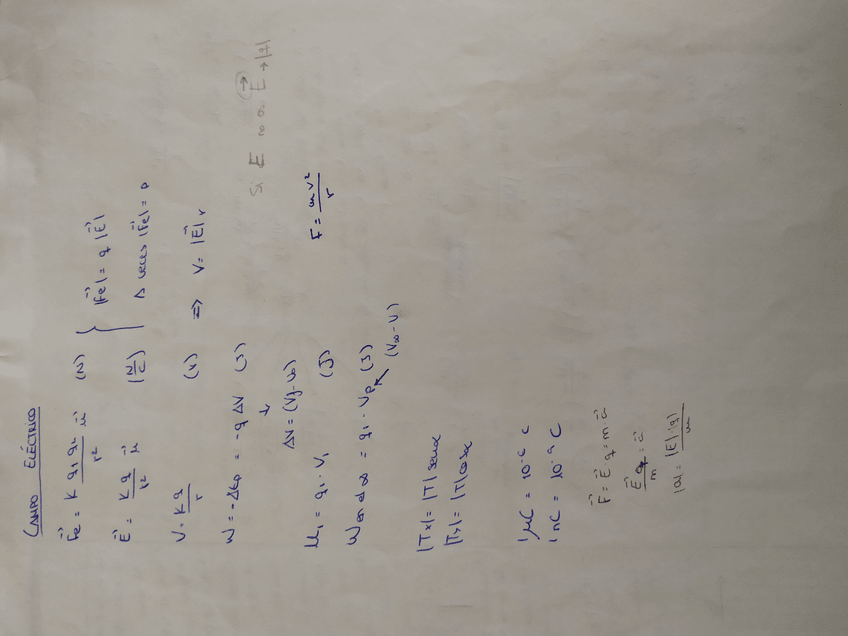 CAMPO ELÉCTRICO
F⃗e = K q₁ q₂ / r² u⃗ (N) { |F⃗e| = q |E⃗|
E⃗ = K q / r² u⃗ (N/C) Δ veces |F⃗e| = p
V = K q / r (V) ⇒ V = |E⃗| r
W = -ΔEp = -q ΔV (J)
↓
ΔV = (Vf - V₀)
Si E⃗ → |E|
U₁ = q₁ · V₁ (J) F = m v² / r
W en el ∞ = q₁ · Vp (J)
(V∞ - V)
|Tx| = |T| senα
|Ty| = |T| cosα
1 μC = 10⁻⁶ C
1 nC = 10⁻⁹ C
F⃗ = E⃗ q = m a⃗
E⃗ q / m = a⃗
|a| = |E| |q| / m